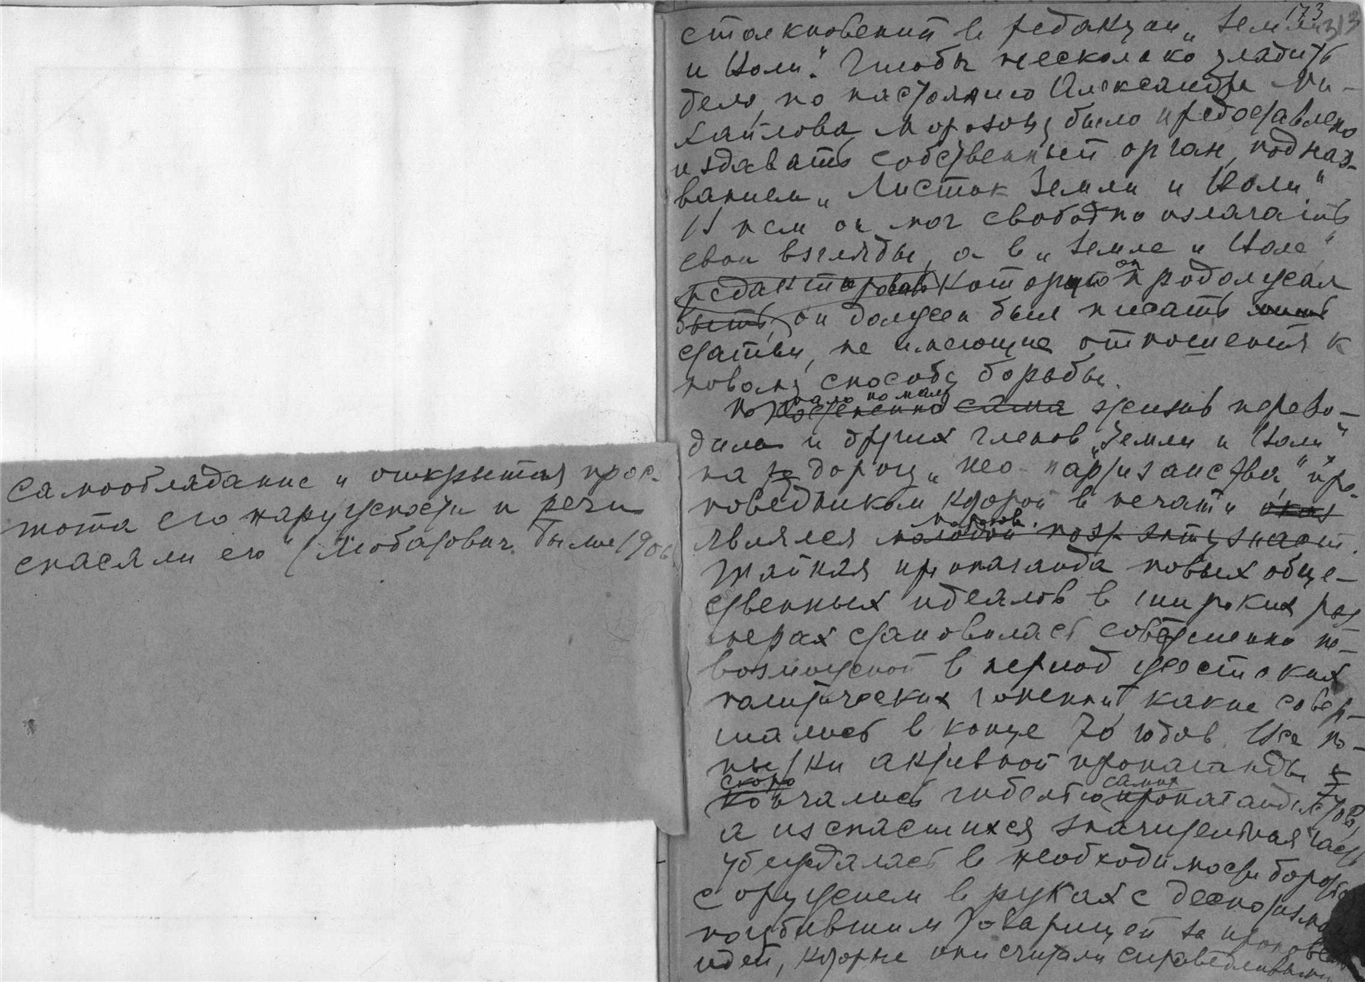 самообладание и открытая прос-
тота его наружности и речи
спасали его (Любатович. Былое 1906
173
313
столкновений в редакции „Земли
и Воли“. Чтобы несколько уладить
дело, по настоянию Александра Ми-
хайлова, Морозову было предоставлено
издавать собственный орган, под наз-
ванием „Листок Земли и Воли“.
В нем он мог свободно излагать
свои взгляды, а в „Земле и Воле“
редактировать которую он продолжал
быть, он должен был писать
статьи, не имеющие отношения к
новому способу борьбы.
Мало по малу
Постепенно сама жизнь перево-
дила и других членов „Земли и Воли“
на дорогу „нео-партизанства“ про-
поведником которой в печати
Морозов.
являлся молодой поэт энтузиаст.
Тайная пропаганда новых обще-
ственных идеалов в широких раз-
мерах становилась совершенно не-
возможной в период жестоких
политических гонений какие совер-
шались в конце 70 годов. Все по-
пытки активной пропаганды
скоро самих
кончались гибелью пропагандистов,
а из спасшихся значительная часть
убеждалась в необходимости бороться
с оружием в руках с деспотизмом
погубившим товарищей за проповедь
идей, которые они считали справедливыми